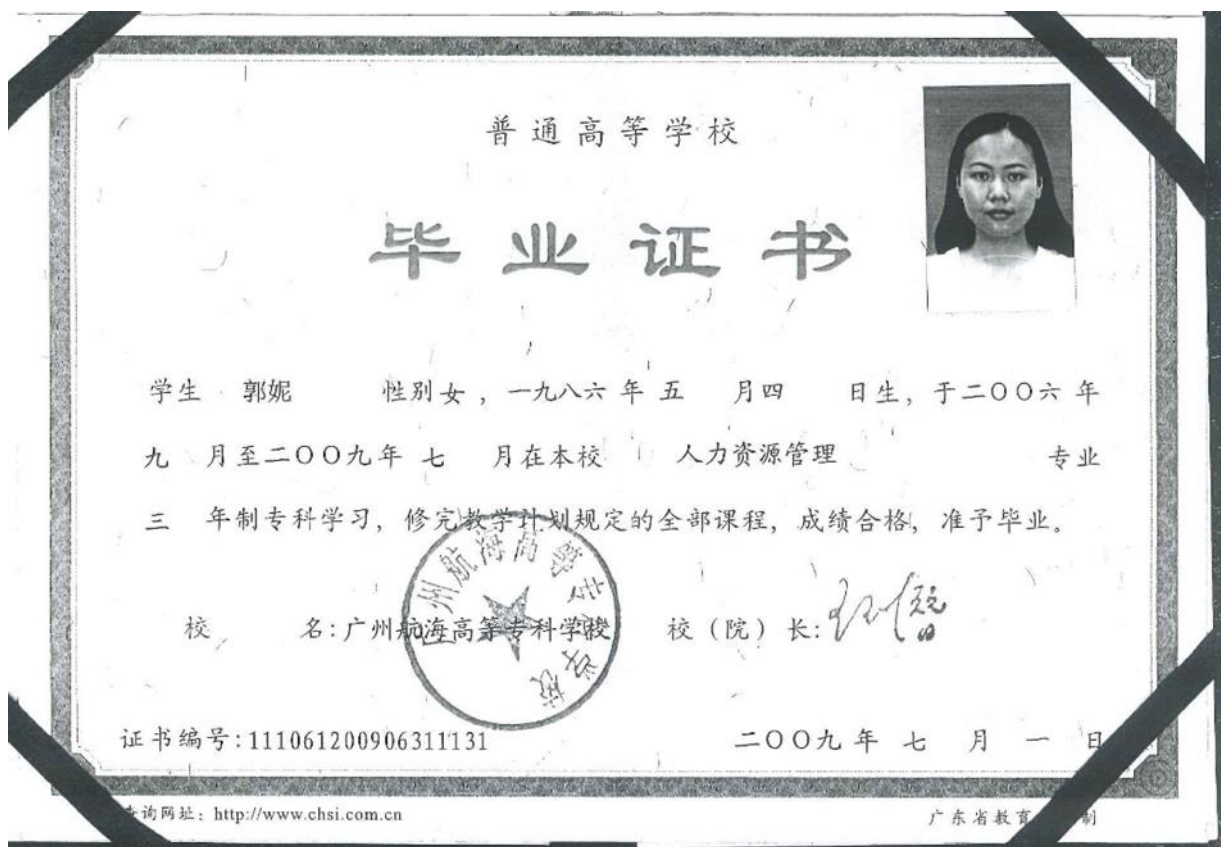 普通高等学校
毕业证书
学生 郭妮 性别 女 ，一九八六 年 五 月四 日生，于二〇〇六 年
九 月至二〇〇九年 七 月在本校 人力资源管理 专业
三 年制专科学习，修完教学计划规定的全部课程，成绩合格，准予毕业。
广州航海高等专科学校
校 名：广州航海高等专科学校 校（院）长：
证书编号：111061200906311131 二〇〇九 年 七 月 一 日
询网址：http://www.chsi.com.cn 广东省教育 制